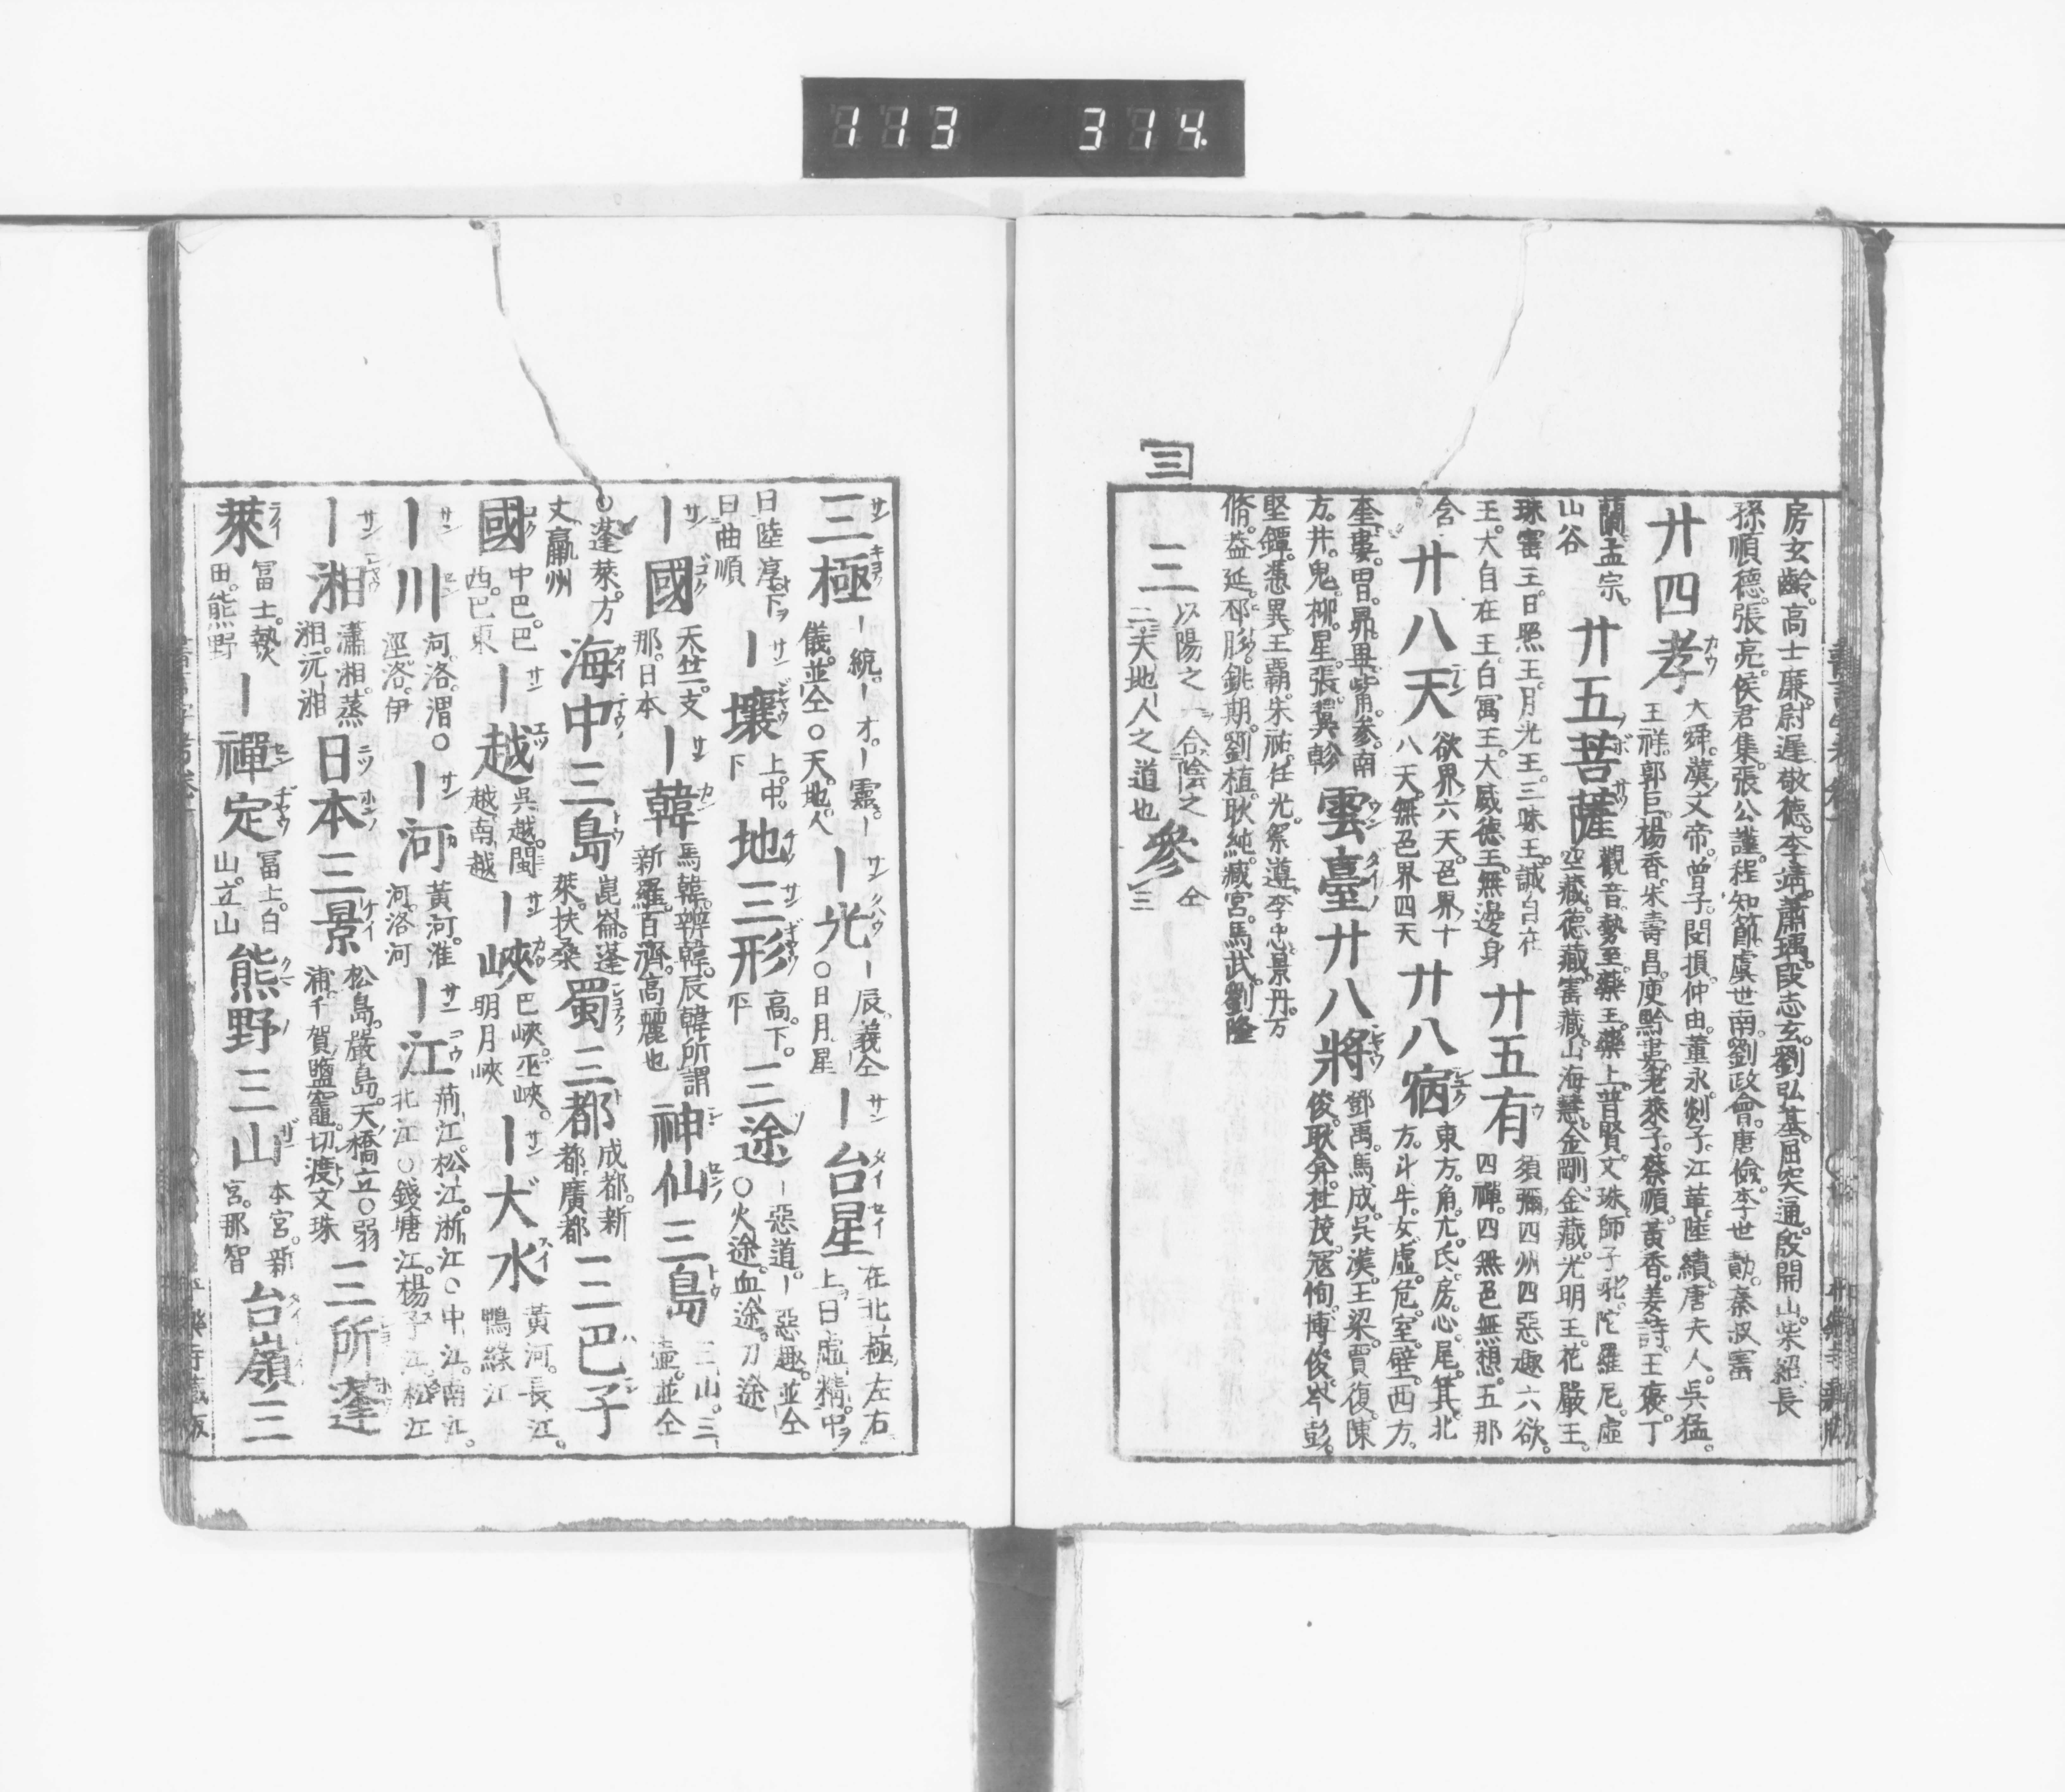 113 314
房玄齡。高士廉。尉遲敬德。李靖。蕭瑀。段志玄。劉弘基。屈突通。殷開山。柴紹。長
孫順德。張亮。侯君集。張公謹。程知節。虞世南。劉政會。唐儉。李世勣。秦叔寳
廿四孝 大舜。漢文帝。曾子。閔損。仲由。董永。剡子。江革。陸績。唐夫人。吳猛。
王祥。郭巨。楊香。朱壽昌。庾黔婁。老萊子。蔡順。黃香。姜詩。王裒。丁
蘭。孟宗。
山谷
廿五菩薩 觀音。勢至。藥王。藥上。普賢。文珠。師子吼。陀羅尼。虛
空藏。德藏。寳藏。山海慧。金剛。金藏。光明王。花嚴王。
珠寳王。日照王。月光王。三昧王。誠自在
王。大自在王。白寓王。大威德王。無邊身
廿五有 須彌四州四惡趣六欲。
四禪。四無色無想。五那
含
廿八天 欲界六天。色界十
八天。無色界四天
廿八宿 東方。角亢氏房心尾箕。北
方。斗牛女虛危室壁。西方。
奎婁胃昴畢觜參。南
方。井鬼柳星張翼軫
雲臺廿八將 鄧禹。馬成。吳漢。王梁。賈復。陳
俊。耿弇。杜茂。冦恂。博俊。岑彭。
堅鐔。馮異。王霸。朱祐。任光。祭遵。李忠。景丹。万
脩。葢延。邳肜。銚期。劉植。耿純。臧宮。馬武。劉隆
三
三 以陽之一合陰之
二。天地人之道也
參 仝
三
三極 ー統。ー才。ー靈。ー
儀。並仝○天。地。人
ー光 ー辰義仝
○日月星
ー台星 在北極左右
上曰虛精。中
曰陸淳。下
曰曲順
ー壤 上。中。
下
地三形 高。下。
平
三途 ー惡道。ー惡趣。並仝
○火途。血途。刀途
ー國 天竺。支
那。日本
ー韓 馬韓。辨韓。辰韓所謂
新羅。百濟。高麗也
神仙三島 三山。三
壷。並仝
○蓬萊。方
丈。瀛州
海中三島 崑崙。蓬
萊。扶桑
蜀三都 成都。新
都。廣都
三巴子
國 中巴。巴
西。巴東
ー越 吳越。閩
越。南越
ー峽 巴峽。巫峽。
明月峽
ー大水 黃河。長江。
鴨綠江
ー川 河。洛。渭○
涇。洛。伊
ー河 黃河。淮
河。洛河
ー江 荊江。松江。浙江○中江。南江。
北江○錢塘江。楊子江。松江
ー湘 瀟湘。蒸
湘。沅湘
日本三景 松島。嚴島。天橋立○弱
浦。千賀鹽竈。切渡文珠
三所蓬
萊 冨士。熱
田。熊野
ー禪定 冨士。白
山。立山
熊野三山 本宮。新
宮。那智
台嶺三